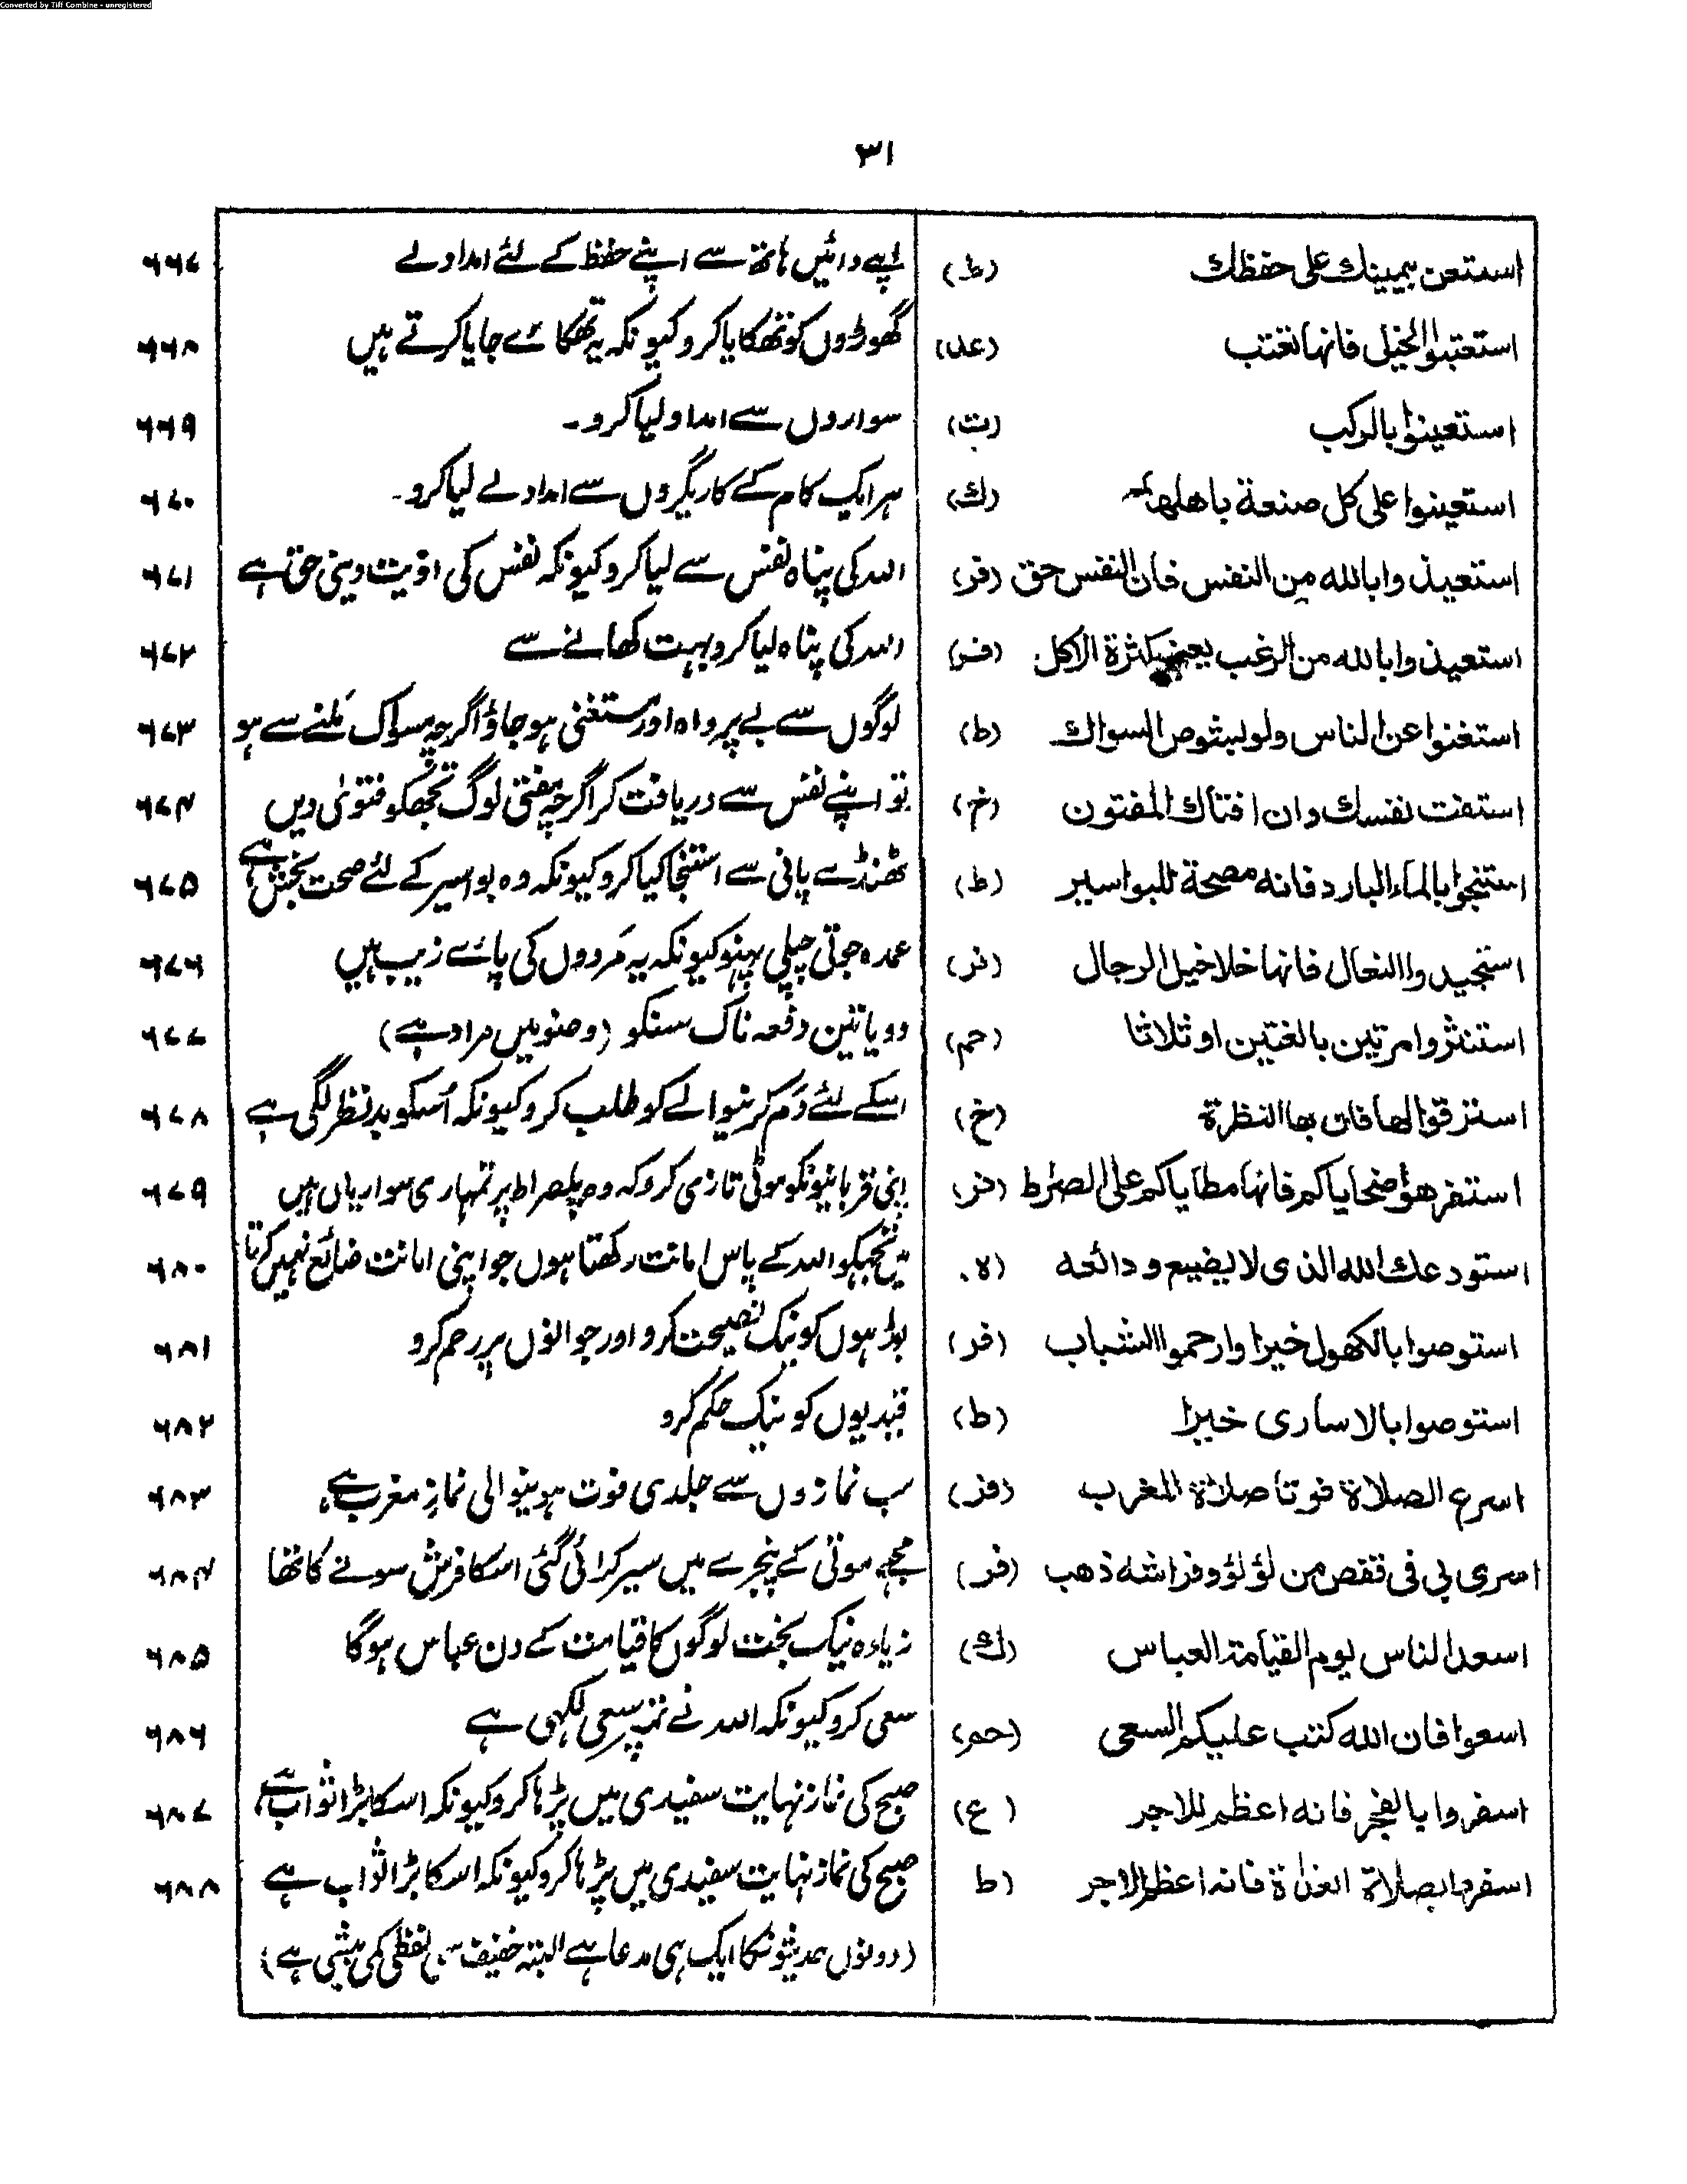 Converted by Tiff Combine - unregistered
۳۱
استعن بیمینك علی حفظك (ط) اپنے دائیں ہاتھ سے اپنے حفظ کے لئے امداد لے ۶۶۷
استعتبوا الخیل فانها تعتب (عد) گھوڑوں کو تھکایا کرو کیونکہ یہ تھکائے جایا کرتے ہیں ۶۶۸
استعینوا بالرکب (ت) سواروں سے امداد لیا کرو۔ ۶۶۹
استعینوا علی کل صنعة باهلها (ك) ہر ایک کام کے کاریگروں سے امداد لے لیا کرو۔ ۶۷۰
استعیذوا بالله من النفس فان النفس حق (فر) اللہ کی پناہ نفس سے لیا کرو کیونکہ نفس کی اذیت دینی حق ہے ۶۷۱
استعیذوا بالله من الرغب یعنی کثرة الاکل (فر) اللہ کی پناہ لیا کرو بہت کھانے سے ۶۷۲
استغنوا عن الناس ولو بشوص السواك (ط) لوگوں سے بے پرواہ اور مستغنی ہو جاؤ اگرچہ مسواک ملنے سے ہو ۶۷۳
استفت نفسك وان افتاك المفتون (خ) تو اپنے نفس سے دریافت کر اگرچہ مفتی لوگ تجھکو فتویٰ دیں ۶۷۴
استنجوا بالماء البارد فانه مصحة للبواسیر (ط) ٹھنڈے پانی سے استنجا کیا کرو کیونکہ وہ بواسیر کے لئے صحت بخش ہے ۶۷۵
استجیدوا النعال فانها خلاخیل الرجال (فر) عمدہ جوتی چپلی پہنو کیونکہ یہ مَردوں کی پائے زیب ہیں ۶۷۶
استنثروا مرتین بالغتین او ثلاثا (حم) دو یا تین دفعہ ناک سنکو (وضو میں مراد ہے) ۶۷۷
استرقوا لها فان بها النظرة (خ) اسکے لئے دَم کرنیوالے کو طلب کرو کیونکہ اُسکو بد نظر لگی ہے ۶۷۸
استفرهوا ضحایاکم فانها مطایاکم علی الصراط (فر) اپنی قربانیونکو موٹی تازی کرو کہ وہ پلصراط پر تمہاری سواریاں ہیں ۶۷۹
استودعك الله الذی لا یضیع ودائعه (ہ) میں تجھکو اللہ کے پاس امانت رکھتا ہوں جو اپنی امانت ضائع نہیں کرتا ۶۸۰
استوصوا بالکهول خیرا وارحموا الشباب (فر) بڈاہوں کو نیک نصیحت کرو اور جوانوں پر رحم کرو ۶۸۱
استوصوا بالاساری خیرا (ط) قیدیوں کو نیک حکم کرو ۶۸۲
اسرع الصلاة فوتا صلاة المغرب (فر) سب نمازوں سے جلدی فوت ہونیوالی نمازِ مغرب ہے ۶۸۳
اسری بی فی قفص من لؤلؤ وفراشه ذهب (فر) مجھے موتی کے پنجرے میں سیر کرائی گئی اسکا فرش سونے کا تھا ۶۸۴
اسعد الناس یوم القیامة العباس (ك) زیادہ نیک بخت لوگوں کا قیامت کے دن عباس ہوگا ۶۸۵
اسعوا فان الله کتب علیکم السعی (حم) سعی کرو کیونکہ اللہ نے تمپر سعی لکھی ہے ۶۸۶
اسفروا بالفجر فانه اعظم للاجر (ع) صبح کی نماز نہایت سفیدی میں پڑہا کرو کیونکہ اسکا بڑا ثواب ہے ۶۸۷
اسفروا بصلاة الغداة فانه اعظم الاجر (ط صبح کی نماز نہایت سفیدی میں پڑہا کرو کیونکہ اسکا بڑا ثواب ہے ۶۸۸
(دونوں حدیثونکا ایک ہی مدعا ہے البتہ خفیف سی لفظی کمی بیشی ہے)